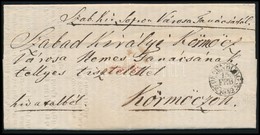 Szab. kir. Sopron Városa Tanácsától.
Szabad királyi Körmöcz
Városa Nemes Tanácsának
tellyes tisztelettel
hivatalból.
Körmöczön.